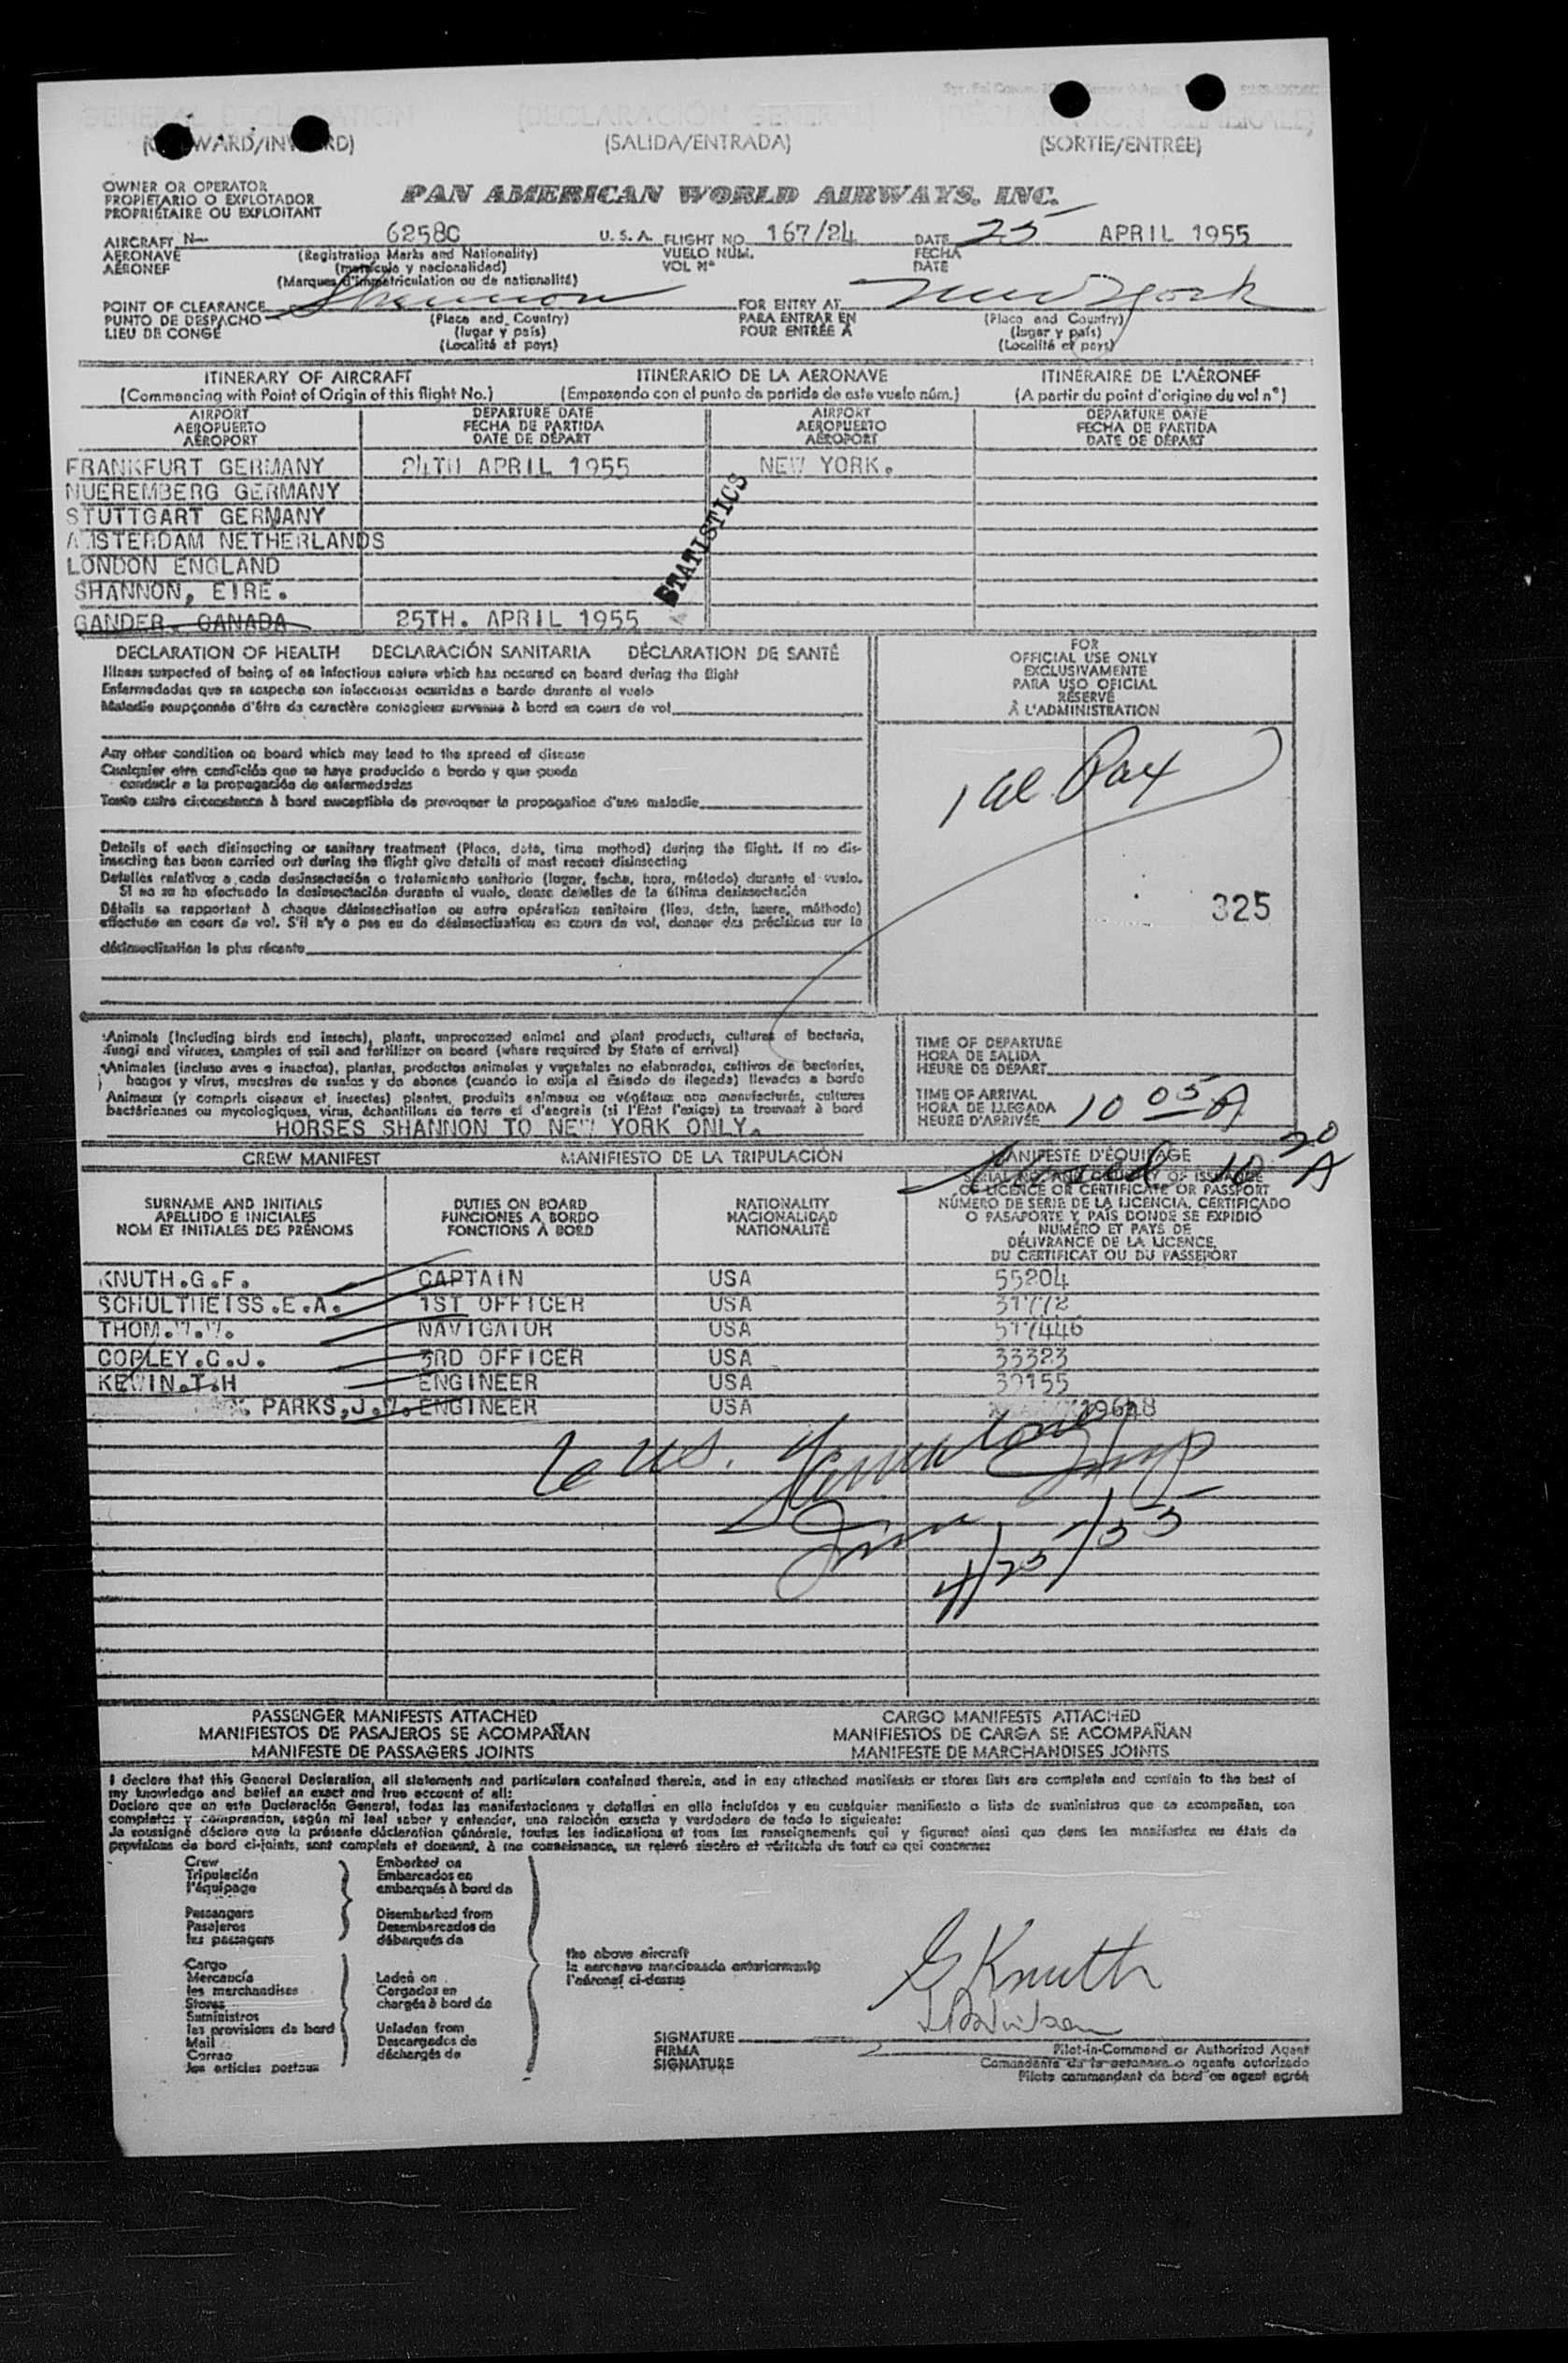 GENERAL DECLARATION (DECLARACIÓN GENERAL) (DÉCLARATION GÉNÉRALE)
(OUTWARD/INWARD) (SALIDA/ENTRADA) (SORTIE/ENTRÉE)
OWNER OR OPERATOR
PROPIETARIO O EXPLOTADOR
PROPRIÉTAIRE OU EXPLOITANT
PAN AMERICAN WORLD AIRWAYS, INC.
AIRCRAFT N- 6258C U. S. A. FLIGHT NO. 167/24 DATE 25 APRIL 1955
AERONAVE (Registration Marks and Nationality) VUELO NUM. FECHA
AÉRONEF (matrícula y nacionalidad) VOL Nº DATE
(Marques d'immatriculation ou de nationalité)
POINT OF CLEARANCE Shannon FOR ENTRY AT New York
PUNTO DE DESPACHO (Place and Country) PARA ENTRAR EN (Place and Country)
LIEU DE CONGÉ (lugar y país) POUR ENTRÉE À (lugar y país)
(Localité et pays) (Localité et pays)
ITINERARY OF AIRCRAFT ITINERARIO DE LA AERONAVE ITINÉRAIRE DE L'AÉRONEF
(Commencing with Point of Origin of this flight No.) (Empezando con el punto de partida de este vuelo núm.) (A partir du point d'origine du vol nº)
AIRPORT DEPARTURE DATE AIRPORT DEPARTURE DATE
AEROPUERTO FECHA DE PARTIDA AEROPUERTO FECHA DE PARTIDA
AÉROPORT DATE DE DÉPART AÉROPORT DATE DE DÉPART
FRANKFURT GERMANY 24TH APRIL 1955 NEW YORK.
NUEREMBERG GERMANY
STUTTGART GERMANY
AMSTERDAM NETHERLANDS
LONDON ENGLAND
SHANNON, EIRE.
GANDER. CANADA 25TH. APRIL 1955
STATISTICS
DECLARATION OF HEALTH DECLARACIÓN SANITARIA DÉCLARATION DE SANTÉ
Illness suspected of being of an infectious nature which has occured on board during the flight
Enfermedades que se sospecha son infecciosas ocurridas a bordo durante el vuelo
Maladie soupçonnée d'être de caractère contagieux survenue à bord en cours de vol
FOR
OFFICIAL USE ONLY
EXCLUSIVAMENTE
PARA USO OFICIAL
RÉSERVÉ
À L'ADMINISTRATION
Any other condition on board which may lead to the spread of disease
Cualquier otra condición que se haya producido a bordo y que pueda
conducir a la propagación de enfermedades
Toute autre circonstance à bord susceptible de provoquer la propagation d'une maladie
Pax
Details of each disinsecting or sanitary treatment (Place, date, time method) during the flight. If no dis-
insecting has been carried out during the flight give details of most recent disinsecting
Detalles relativos a cada desinsectación o tratamiento sanitario (lugar, fecha, hora, método) durante el vuelo.
Si no se ha efectuado la desinsectación durante el vuelo, dense detalles de la última desinsectación
Détails se rapportant à chaque désinsectisation ou autre opération sanitaire (lieu, date, heure, méthode)
effectuée en cours de vol. S'il n'y a pas eu de désinsectisation en cours de vol, donner des précisions sur la
désinsectisation la plus récente
325
Animals (Including birds and insects), plants, unprocessed animal and plant products, cultures of bacteria,
fungi and viruses, samples of soil and fertilizer on board (where required by State of arrival)
Animales (incluso aves e insectos), plantas, productos animales y vegetales no elaborados, cultivos de bacterias,
hongos y virus, muestras de suelos y de abonos (cuando lo exija el Estado de llegada) llevados a bordo
Animaux (y compris oiseaux et insectes) plantes, produits animaux ou végétaux non manufacturés, cultures
bactériennes ou mycologiques, virus, échantillons de terre et d'engrais (si l'État l'exige) se trouvant à bord
HORSES SHANNON TO NEW YORK ONLY.
TIME OF DEPARTURE
HORA DE SALIDA
HEURE DE DÉPART
TIME OF ARRIVAL
HORA DE LLEGADA
HEURE D'ARRIVÉE 10 05 A
CREW MANIFEST MANIFIESTO DE LA TRIPULACIÓN MANIFESTE D'ÉQUIPAGE
10 30 A
SURNAME AND INITIALS DUTIES ON BOARD NATIONALITY SERIAL NO. AND COUNTRY OF ISSUANCE
APELLIDO E INICIALES FUNCIONES A BORDO NACIONALIDAD OF LICENCE OR CERTIFICATE OR PASSPORT
NOM ET INITIALES DES PRÉNOMS FONCTIONS À BORD NATIONALITÉ NÚMERO DE SERIE DE LA LICENCIA, CERTIFICADO
O PASAPORTE Y PAÍS DONDE SE EXPIDIÓ
NUMÉRO ET PAYS DE
DÉLIVRANCE DE LA LICENCE,
DU CERTIFICAT OU DU PASSEPORT
KNUTH.G.F. CAPTAIN USA 55204
SCHULTHEISS.E.A. 1ST OFFICER USA 31772
THOM.W.W. NAVIGATOR USA 517446
COPLEY.C.J. 3RD OFFICER USA 33323
KEWIN.T.H ENGINEER USA 39155
PARKS,J.W. ENGINEER USA 19648
6 US.
4/25/55
PASSENGER MANIFESTS ATTACHED CARGO MANIFESTS ATTACHED
MANIFIESTOS DE PASAJEROS SE ACOMPAÑAN MANIFIESTOS DE CARGA SE ACOMPAÑAN
MANIFESTE DE PASSAGERS JOINTS MANIFESTE DE MARCHANDISES JOINTS
I declare that this General Declaration, all statements and particulars contained therein, and in any attached manifests or stores lists are complete and contain to the best of
my knowledge and belief an exact and true account of all:
Declaro que en esta Declaración General, todas las manifestaciones y detalles en ella incluídos y en cualquier manifiesto o lista de suministros que se acompañen, son
completos y comprenden, según mi leal saber y entender, una relación exacta y verdadera de todo lo siguiente:
Je soussigné déclare que la présente déclaration générale, toutes les indications et tous les renseignements qui y figurent ainsi que dans les manifestes ou états de
provisions de bord ci-joints, sont complets et donnent, à ma connaissance, un relevé sincère et véritable de tout ce qui concerne:
Crew Embarked on
Tripulación Embarcados en
l'équipage embarqués à bord de
Passengers Disembarked from
Pasajeros Desembarcados de
les passagers débarqués de
the above aircraft
la aeronave mencionada anteriormente
l'aéronef ci-dessus
Cargo
Mercancía Laden on
les marchandises Cargados en
Stores chargés à bord de
Suministros
les provisions de bord Unladen from
Mail Descargados de
Correo déchargés de
les articles postaux
G Knuth
SIGNATURE
FIRMA
SIGNATURE
Pilot-in-Command or Authorized Agent
Comandante de la aeronave o agente autorizado
Pilote commandant de bord ou agent agréé